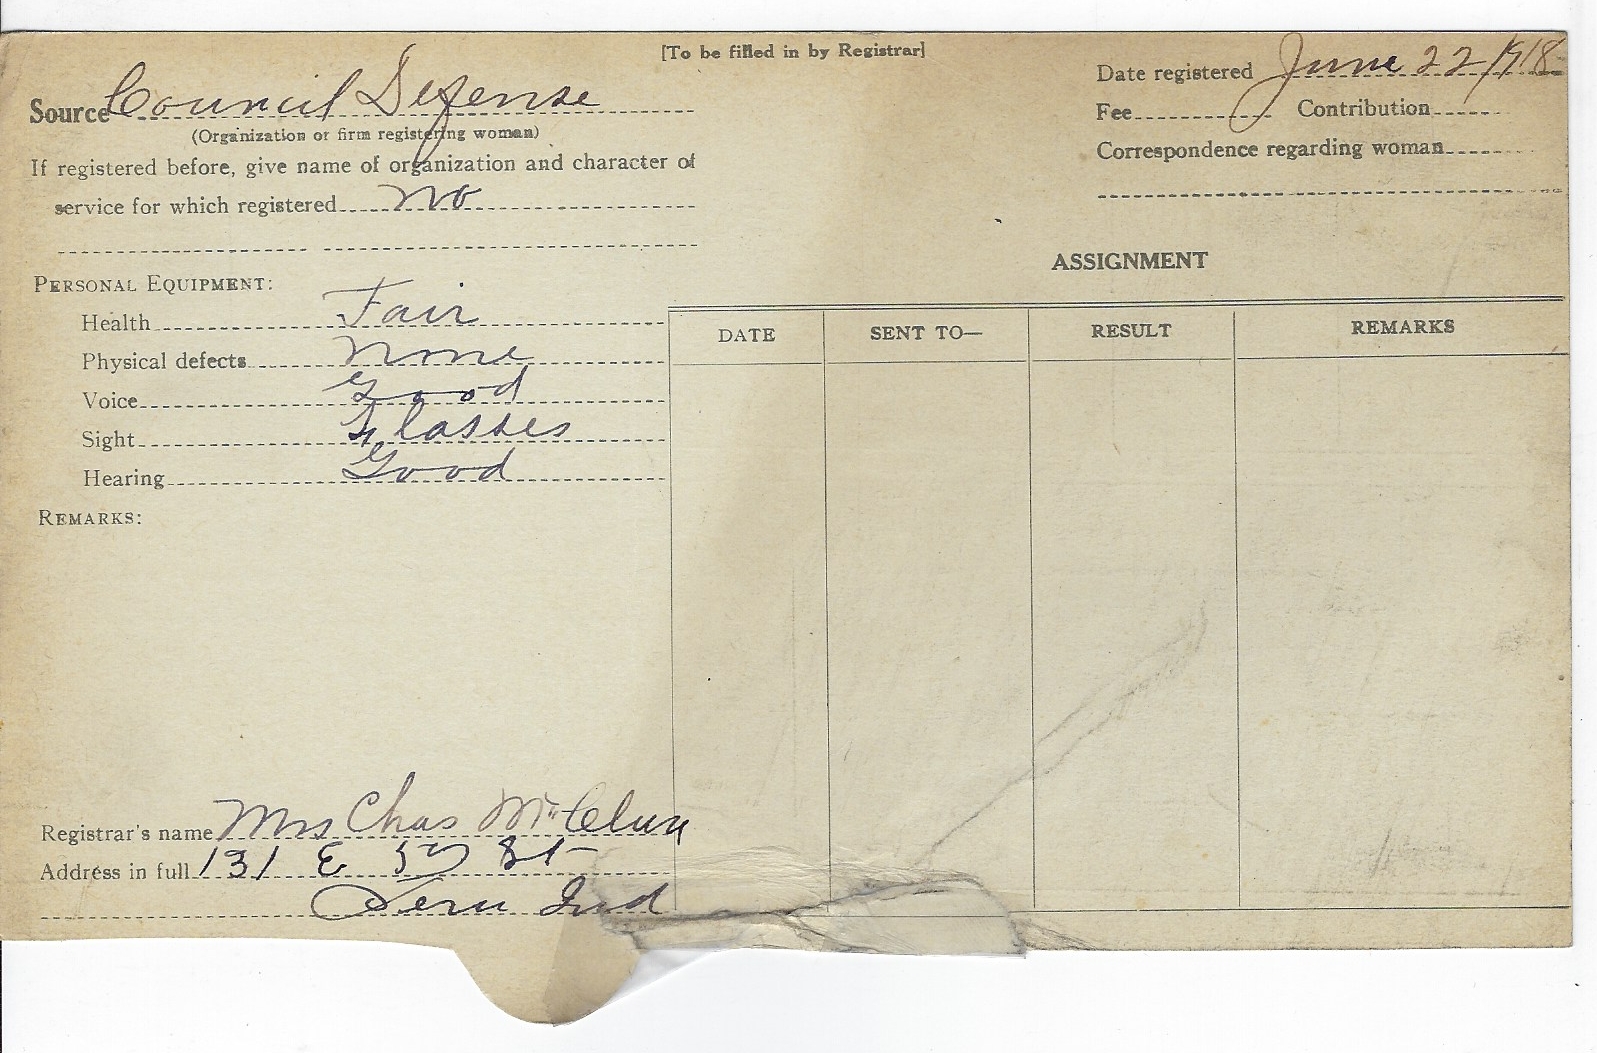 [To be filled in by Registrar]
Source Council Defense
(Organization or firm registering woman)
If registered before, give name of organization and character of
service for which registered No
Date registered June 22/918
Fee Contribution
Correspondence regarding woman
PERSONAL EQUIPMENT:
Health Fair
Physical defects None
Voice Good
Sight Glasses
Hearing Good
REMARKS:
ASSIGNMENT
DATE SENT TO— RESULT REMARKS
Registrar's name Mrs Chas
Address in full 131 E 5th St
Peru Ind